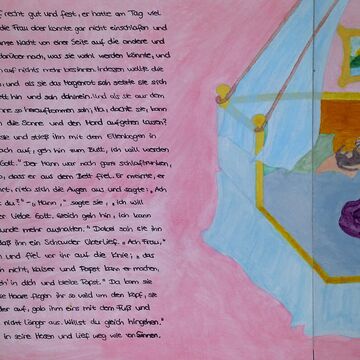 f recht gut und fest, er hatte am Tag viel
die Frau aber konnte gar nicht einschlafen und
nze Nacht von einer Seite auf die andere und
darüber nach, was sie wohl werden könnte, und
auf nichts mehr besinnen. Indessen wollte die
n, und als sie das Morgenrot sah setzte sie sich
ett hin und sah dahinein. Und als sie aus dem
nne so heraufkommen sah: Ha, dachte sie, kann
h die Sonne und den Mond aufgehen lassen?
sie und stieß ihn mit dem Ellenbogen in
ach auf, geh hin zum Butt, ich will werden
Gott." Der Mann war noch ganz schlaftrunken,
o, dass er aus dem Bett fiel. Er meinte, er
rt, rieb sich die Augen aus und sagte: „Ach
t du?" – „Mann," sagte sie, „ich will
er liebe Gott. Gleich geh hin, ich kann
unde mehr aushalten." Dabei sah sie ihn
daß ihn ein Schauder überlief. „Ach Frau,"
n und fiel vor ihr auf die Knie, „das
n nicht, Kaiser und Papst kann er machen,
eh' in dich und bleibe Papst." Da kam sie
ie Haare flogen ihr so wild um den Kopf, sie
der auf, gab ihm eins mit dem Fuß und
nicht länger aus. Willst du gleich hingehen."
in seine Hosen und lief weg wie von Sinnen.